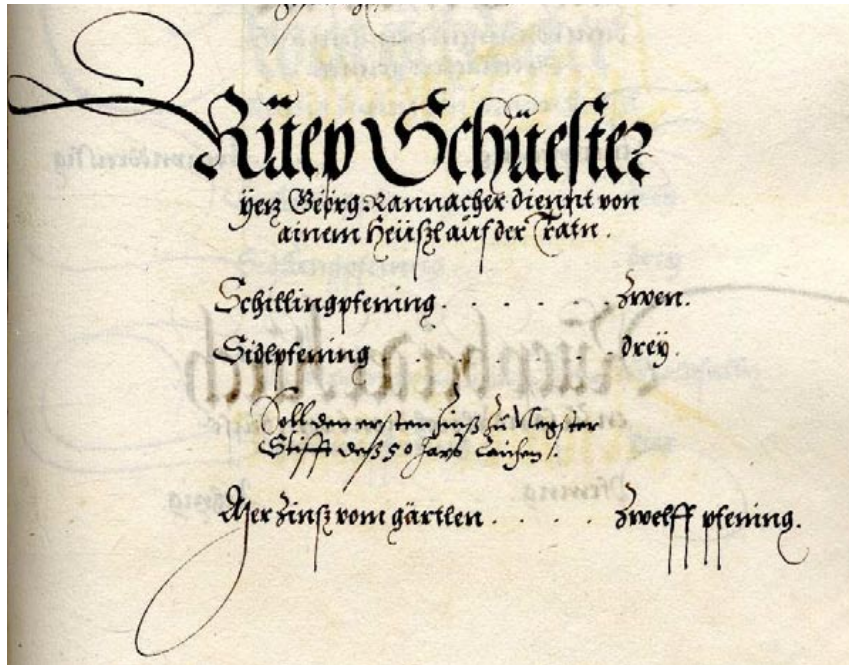 Rüep Schuester
yetz Georg Rannacher diennt von
ainem Heüßl auf der Tratn.
Schillingpfening . . . . . zwen.
Sidlpfening . . . . . . drey.
Soll den ersten Zinß zu Negster
Stifft deß 50 Jars Raichen /.
Mer Zinß vom gärtlen . . . . . zwelff pfening.